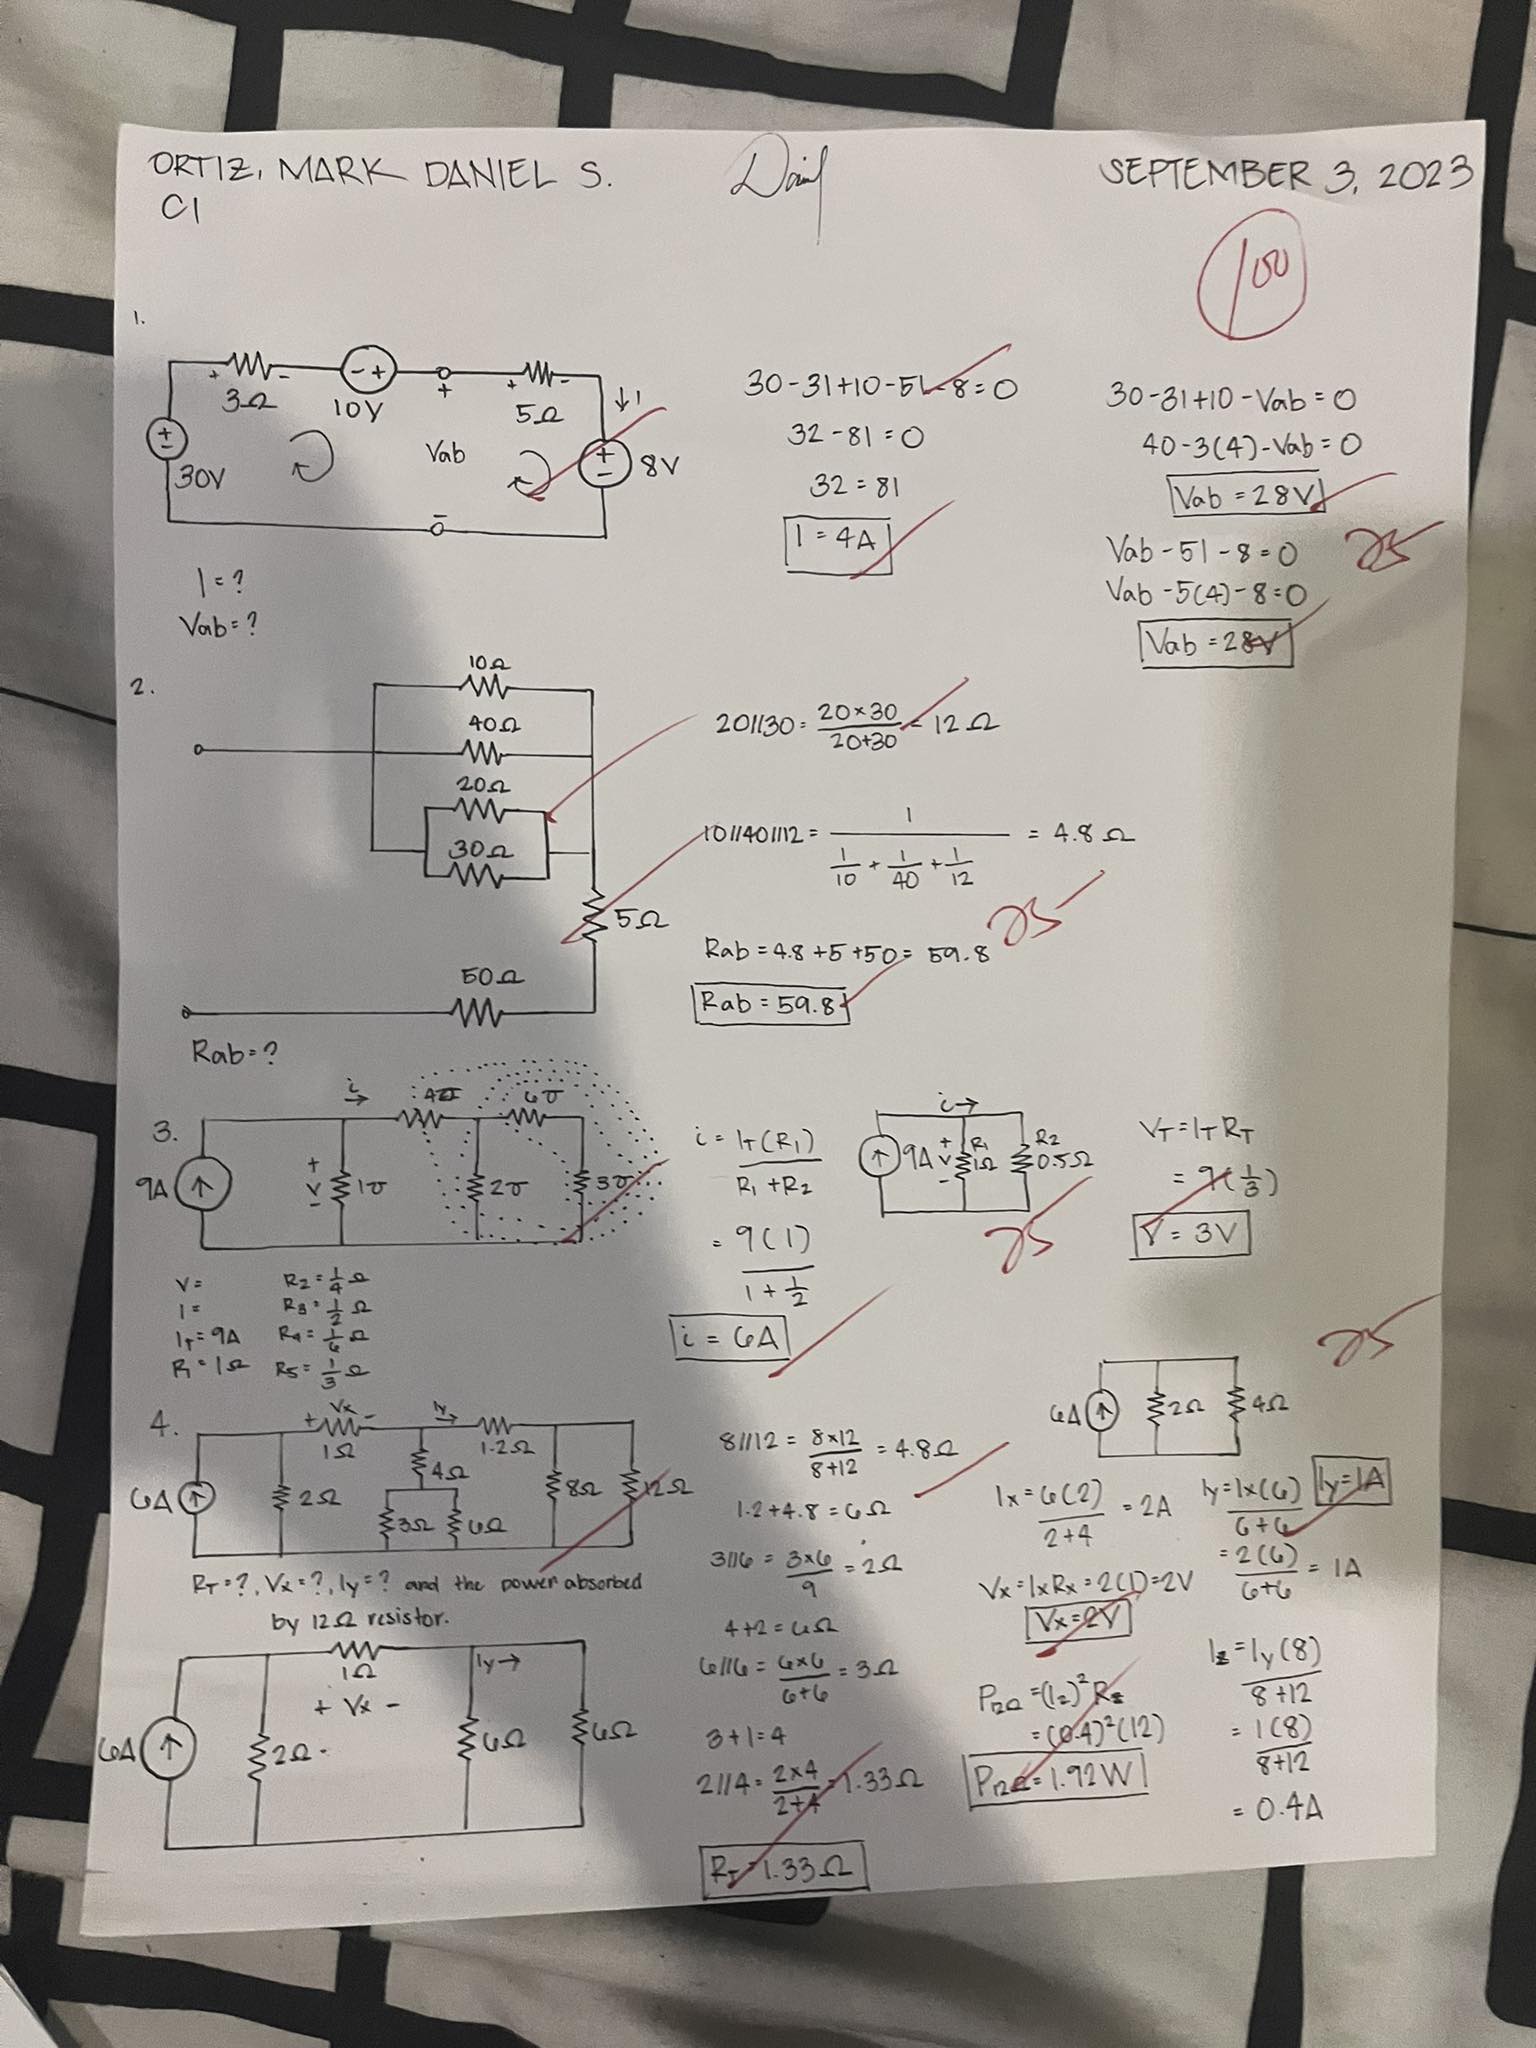 ORTIZ, MARK DANIEL S.
C1
SEPTEMBER 3, 2023
100
1.
3Ω
10V
5Ω
↓I
30V
Vab
8V
I = ?
Vab = ?
30-3I+10-5I-8=0
32-8I=0
32=8I
I=4A
30-3I+10-Vab=0
40-3(4)-Vab=0
Vab=28V
Vab-5I-8=0
Vab-5(4)-8=0
Vab=28V
25
2.
10Ω
40Ω
20Ω
30Ω
5Ω
50Ω
Rab=?
20//30= 20×30/20+30 = 12Ω
10//40//12= 1/(1/10 + 1/40 + 1/12) = 4.8Ω
Rab=4.8+5+50= 59.8
Rab=59.8
25
3.
i →
4℧
6℧
9A
+ V -
1℧
2℧
3℧
V=
I=
IT=9A
R1=1Ω
R2=1/4 Ω
R3=1/2 Ω
R4=1/6 Ω
R5=1/3 Ω
i = IT(R1)/R1+R2
= 9(1)/1+1/2
i = 6A
i→
9A
+ V -
R1
1Ω
R2
0.5Ω
VT=ITRT
= 9(1/3)
V=3V
25
4.
+ Vx -
1Ω
Iy →
1.2Ω
6A
2Ω
4Ω
3Ω
6Ω
8Ω
12Ω
RT=?, Vx=?, Iy=? and the power absorbed
by 12Ω resistor.
1Ω
+ Vx -
Iy→
6A
2Ω
6Ω
6Ω
8//12 = 8×12/8+12 = 4.8Ω
1.2+4.8=6Ω
3//6 = 3×6/9 = 2Ω
4+2=6Ω
6//6 = 6×6/6+6 = 3Ω
3+1=4
2//4= 2×4/2+4 =1.33Ω
RT=1.33Ω
6A
2Ω
4Ω
25
Ix=6(2)/2+4 = 2A
Vx=IxRx=2(1)=2V
Vx=2V
Iy=Ix(6)/6+6
Iy=1A
= 2(6)/6+6 = 1A
P12Ω=(Iz)²Rz
=(0.4)²(12)
P12Ω=1.92W
Iz=Iy(8)/8+12
= 1(8)/8+12
= 0.4A